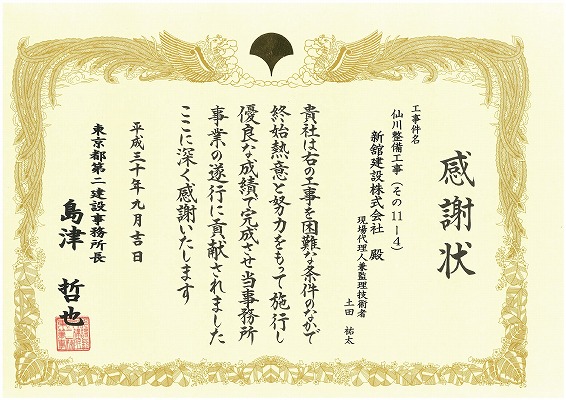 感謝状
工事件名
仙川整備工事(その11-4)
新舘建設株式会社 殿
現場代理人兼監理技術者
土田 祐太
貴社は右の工事を困難な条件のなかで
終始熱意と努力をもって施行し
優良な成績で完成させ当事務所
事業の遂行に貢献されました
ここに深く感謝いたします
平成三十年九月吉日
東京都第二建設事務所長
島津 哲也